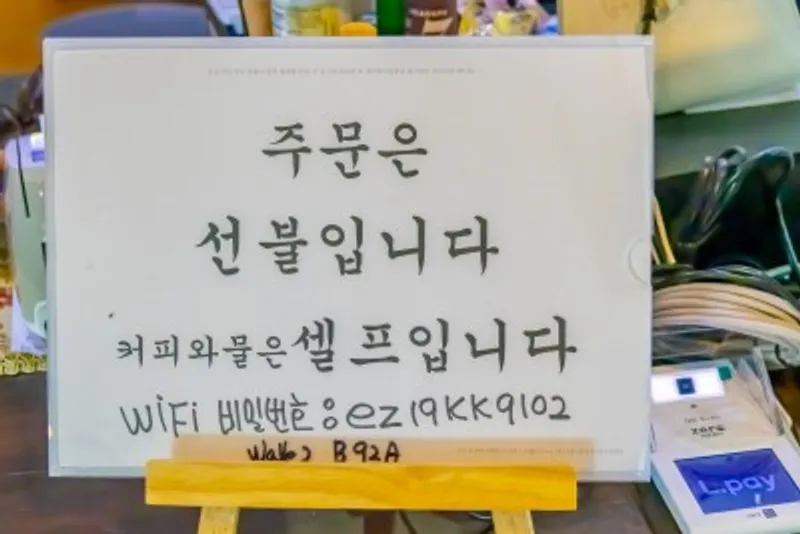 주문은
선불입니다
커피와물은셀프입니다
WiFi 비밀번호: ez19KK9102
B92A
zero
L.pay